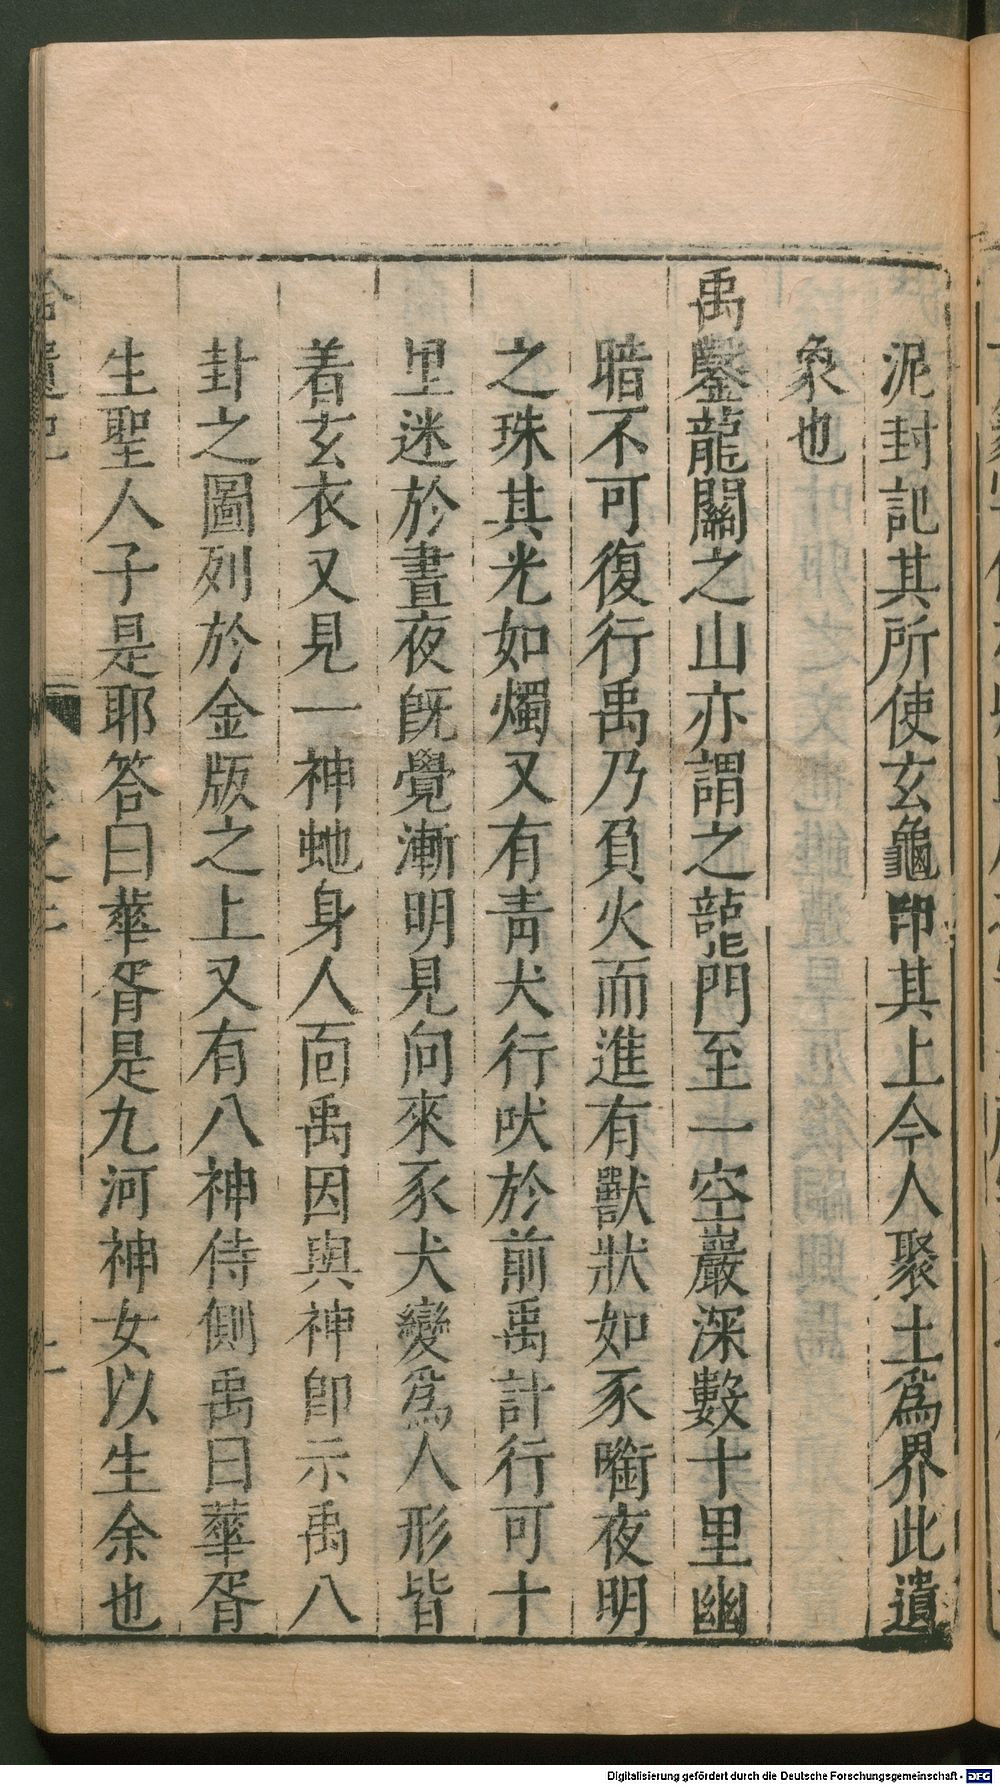 泥封記其所使玄龜印其上今人聚土爲界此遺
象也
禹鑿龍關之山亦謂之龍門至一空巖深數十里幽
暗不可復行禹乃負火而進有獸狀如豕㘅夜明
之珠其光如燭又有靑犬行吠於前禹計行可十
里迷於晝夜旣覺漸明見向來豕犬變爲人形皆
着玄衣又見一神虵身人面禹因與神卽示禹八
卦之圖列於金版之上又有八神侍側禹曰華胥
生聖人子是耶答曰華胥是九河神女以生余也
拾遺記 卷之二
Digitalisierung gefördert durch die Deutsche Forschungsgemeinschaft - DFG